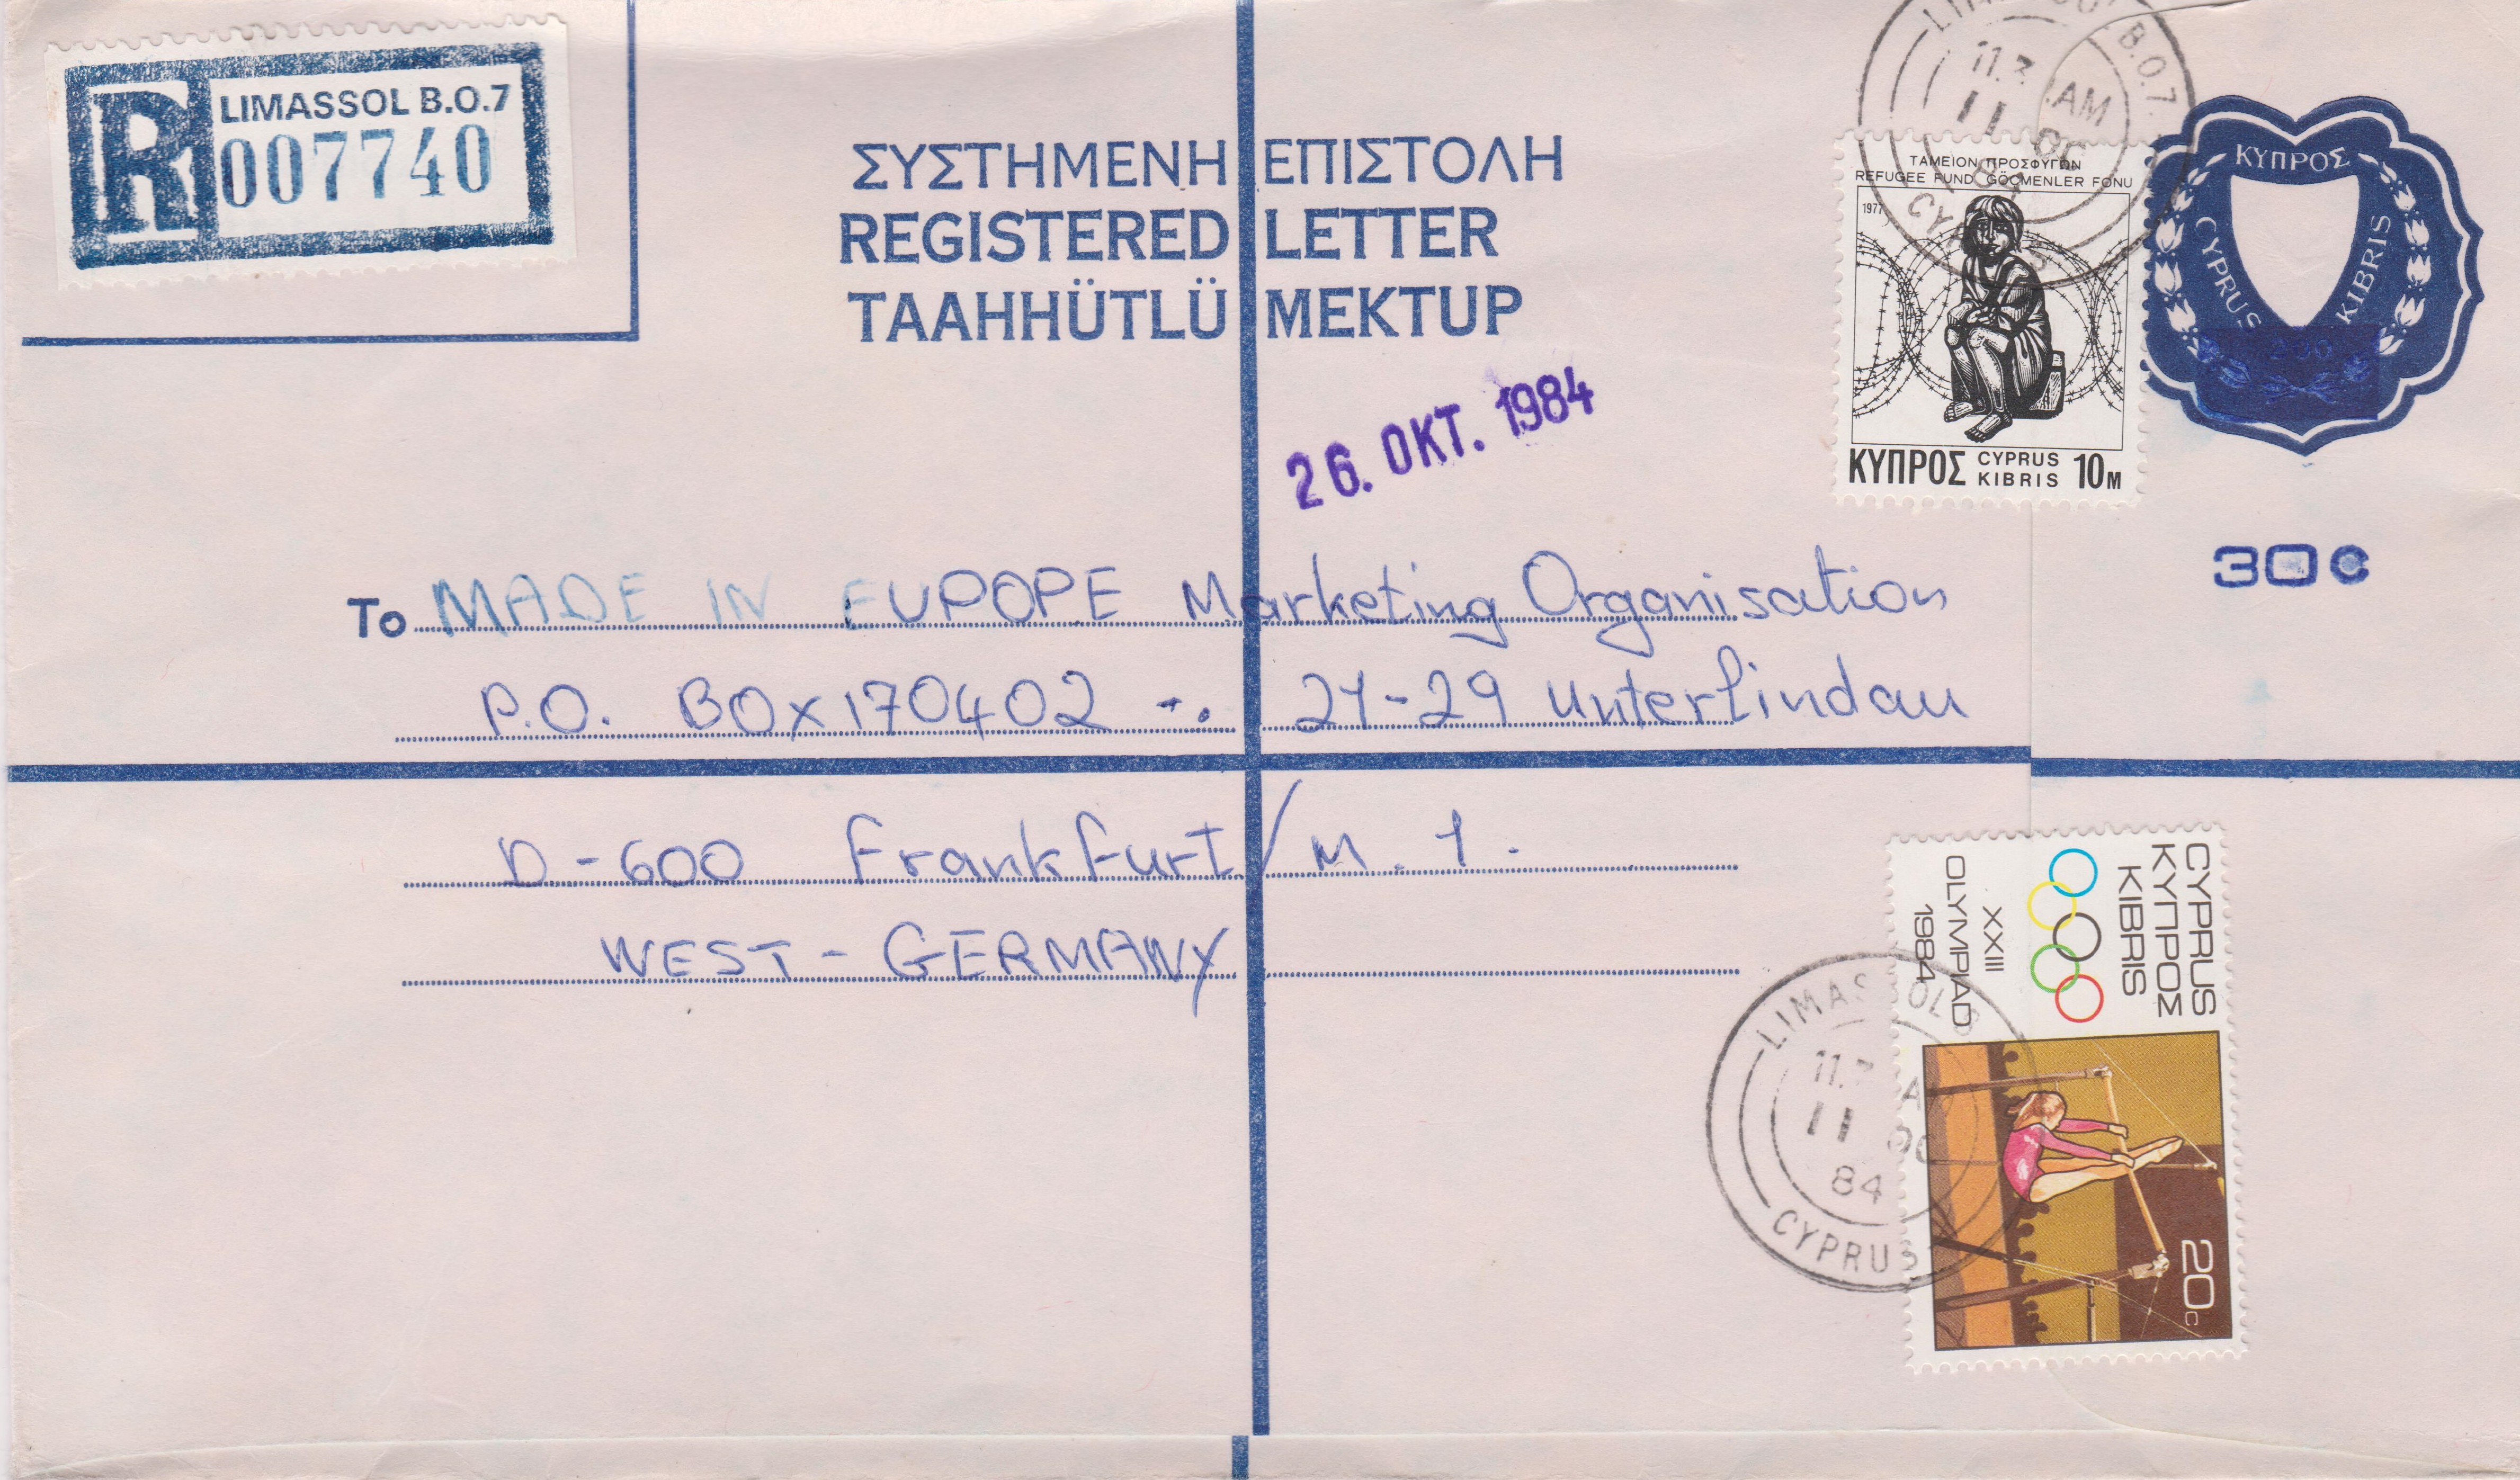 R
LIMASSOL B.O.7
007740
ΣΥΣΤΗΜΕΝΗ ΕΠΙΣΤΟΛΗ
REGISTERED LETTER
TAAHHÜTLÜ MEKTUP
26. OKT. 1984
B.O.7
AM
11
ΤΑΜΕΙΟΝ ΠΡΟΣΦΥΓΩΝ
REFUGEE FUND GÖÇMENLER FONU
1977
ΚΥΠΡΟΣ CYPRUS KIBRIS 10M
ΚΥΠΡΟΣ
CYPRUS
KIBRIS
30c
To MADE IN EUPOPE Marketing Organisation
P.O. BOX 170402 -. 21-29 Unterlindau
D-600 Frankfurt/M. 1.
WEST-GERMANY
CYPRUS
ΚΥΠΡΟΣ
KIBRIS
XXIII
OLYMPIAD
1984
20c
LIMASSOL
11
84
CYPRUS